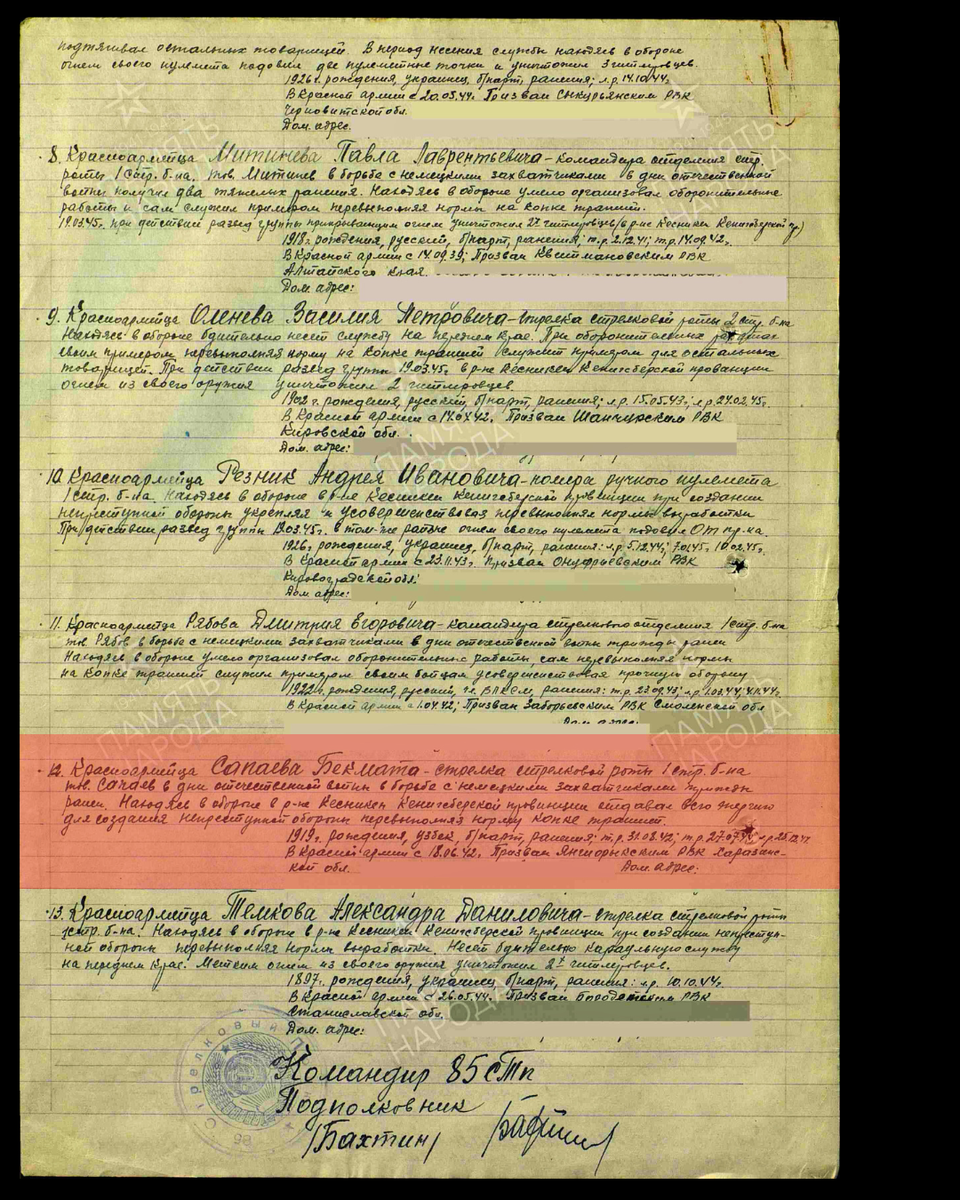 подтягивал остальных товарищей. В период несения службы находясь в обороне
огнем своего пулемета подавил две пулеметные точки и уничтожил 3 гитлеровцев.
1926 г. рождения, украинец, б/парт, ранения; л.р. 14.10.44.
В Красной армии с 20.05.44. Призван Сикурьянским РВК
Черновитской обл.
Дом. адрес.
8. Красноармейца Митинева Павла Лаврентьевича - командира отделения стр.
роты 1 стр. б-на. тов. Митинев в борьбе с немецкими захватчиками в дни отечественной
войны получил два тяжелых ранения. Находясь в обороне умело организовал оборонительные
работы и сам служил примером перевыполняя нормы на копке траншей.
19.03.45г. при действии развед группы прикрывающим огнем уничтожил 2х гитлеровцев (в р-не Кесникен
1918 г. рождения, русский, б/парт, ранения; т.р. 2.12.41; т.р. 14.09.42г.
В Красной армии с 14.09.39; Призван РВК
Алтайского края.
Дом. адрес:
9. Красноармейца Оленева Василия Петровича - стрелка стрелковой роты 2 стр. б-на
Находясь в обороне бдительно несет службу на переднем крае. При оборонительных работах
своим примером перевыполняя норму на копке траншей служит примером для остальных
товарищей. При действии развед группы 19.03.45г. в р-не Кесникен Кенигсберской провинции
огнем из своего оружия уничтожил 2 гитлеровцев.
1902 г. рождения, русский, б/парт, ранения; л.р. 15.05.43г; л.р. 24.02.45г.
В Красной армии с 14.IX.42. Призван Шанчурским РВК
Кировской обл.
Дом. адрес:
10. Красноармейца Резник Андрея Ивановича - номера ручного пулемета
1 стр. б-на. Находясь в обороне в р-не Кесникен Кенигсберской провинции при создании
неприступной обороны укрепляя и усовершенствовая перевыполнял нормы выработки
При действии развед группы 19.03.45г. в том-же районе огнем своего пулемета подавил От пр-ка.
1926г. рождения, украинец, б/парт, ранения: л.р. 5.12.44; 10.02.45г.
В Красной армии с 23.11.43г. Призван Онуфриевским РВК
Кировоградской обл:
Дом. адрес:
11. Красноармейца Рябова Дмитрия Егоровича - командира стрелкового отделения 1 стр. б-на
тов. Рябов в борьбе с немецкими захватчиками в дни отечественной войны трижды ранен
Находясь в обороне умело организовал оборонительные работы сам перевыполняя нормы
на копке траншей служил примером своим бойцам усовершенствовая прочную оборону
1922 г. рождения, русский, чл. ВЛКСМ, ранения: т.р. 23.09.43; л.р. 1.03.44; 4.11.44г.
В Красной армии с 1.04.42; Призван Заборьевским РВК Смоленской обл
Дом. адрес:
12. Красноармейца Сапаева Бекмата - стрелка стрелковой роты 1 стр. б-на
тов. Сапаев в дни отечественной войны в борьбе с немецкими захватчиками трижды
ранен. Находясь в обороне в р-не Кесникен Кенигсберской провинции отдавал всю энергию
для создания неприступной обороны перевыполняя норму копке траншей.
1919г. рождения, узбек, б/парт, ранения; т.р. 31.08.42; т.р. 27.07.44; л.р.
В Красной армии с 18.06.42. Призван Янгиорыкским РВК Харазанс-
кой обл. Дом. адрес:
13. Красноармейца Темкова Александра Даниловича - стрелка стрелковой роты
стр. б-на. Находясь в обороне в р-не Кесникен Кенигсберской провинции при создании неприступ-
ной обороны перевыполняя нормы выработки. Несет бдительно караульную службу
на переднем крае. Метким огнем из своего оружия уничтожил 2х гитлеровцев.
1897г. рождения, украинец, б/парт, ранения: л.р. 10.10.44г.
В Красной армии с 26.05.44. Призван РВК
Станиславской обл.
Дом. адрес:
Командир 85 стп
Подполковник
/Бахтин/
ПАМЯТЬ
НАРОДА